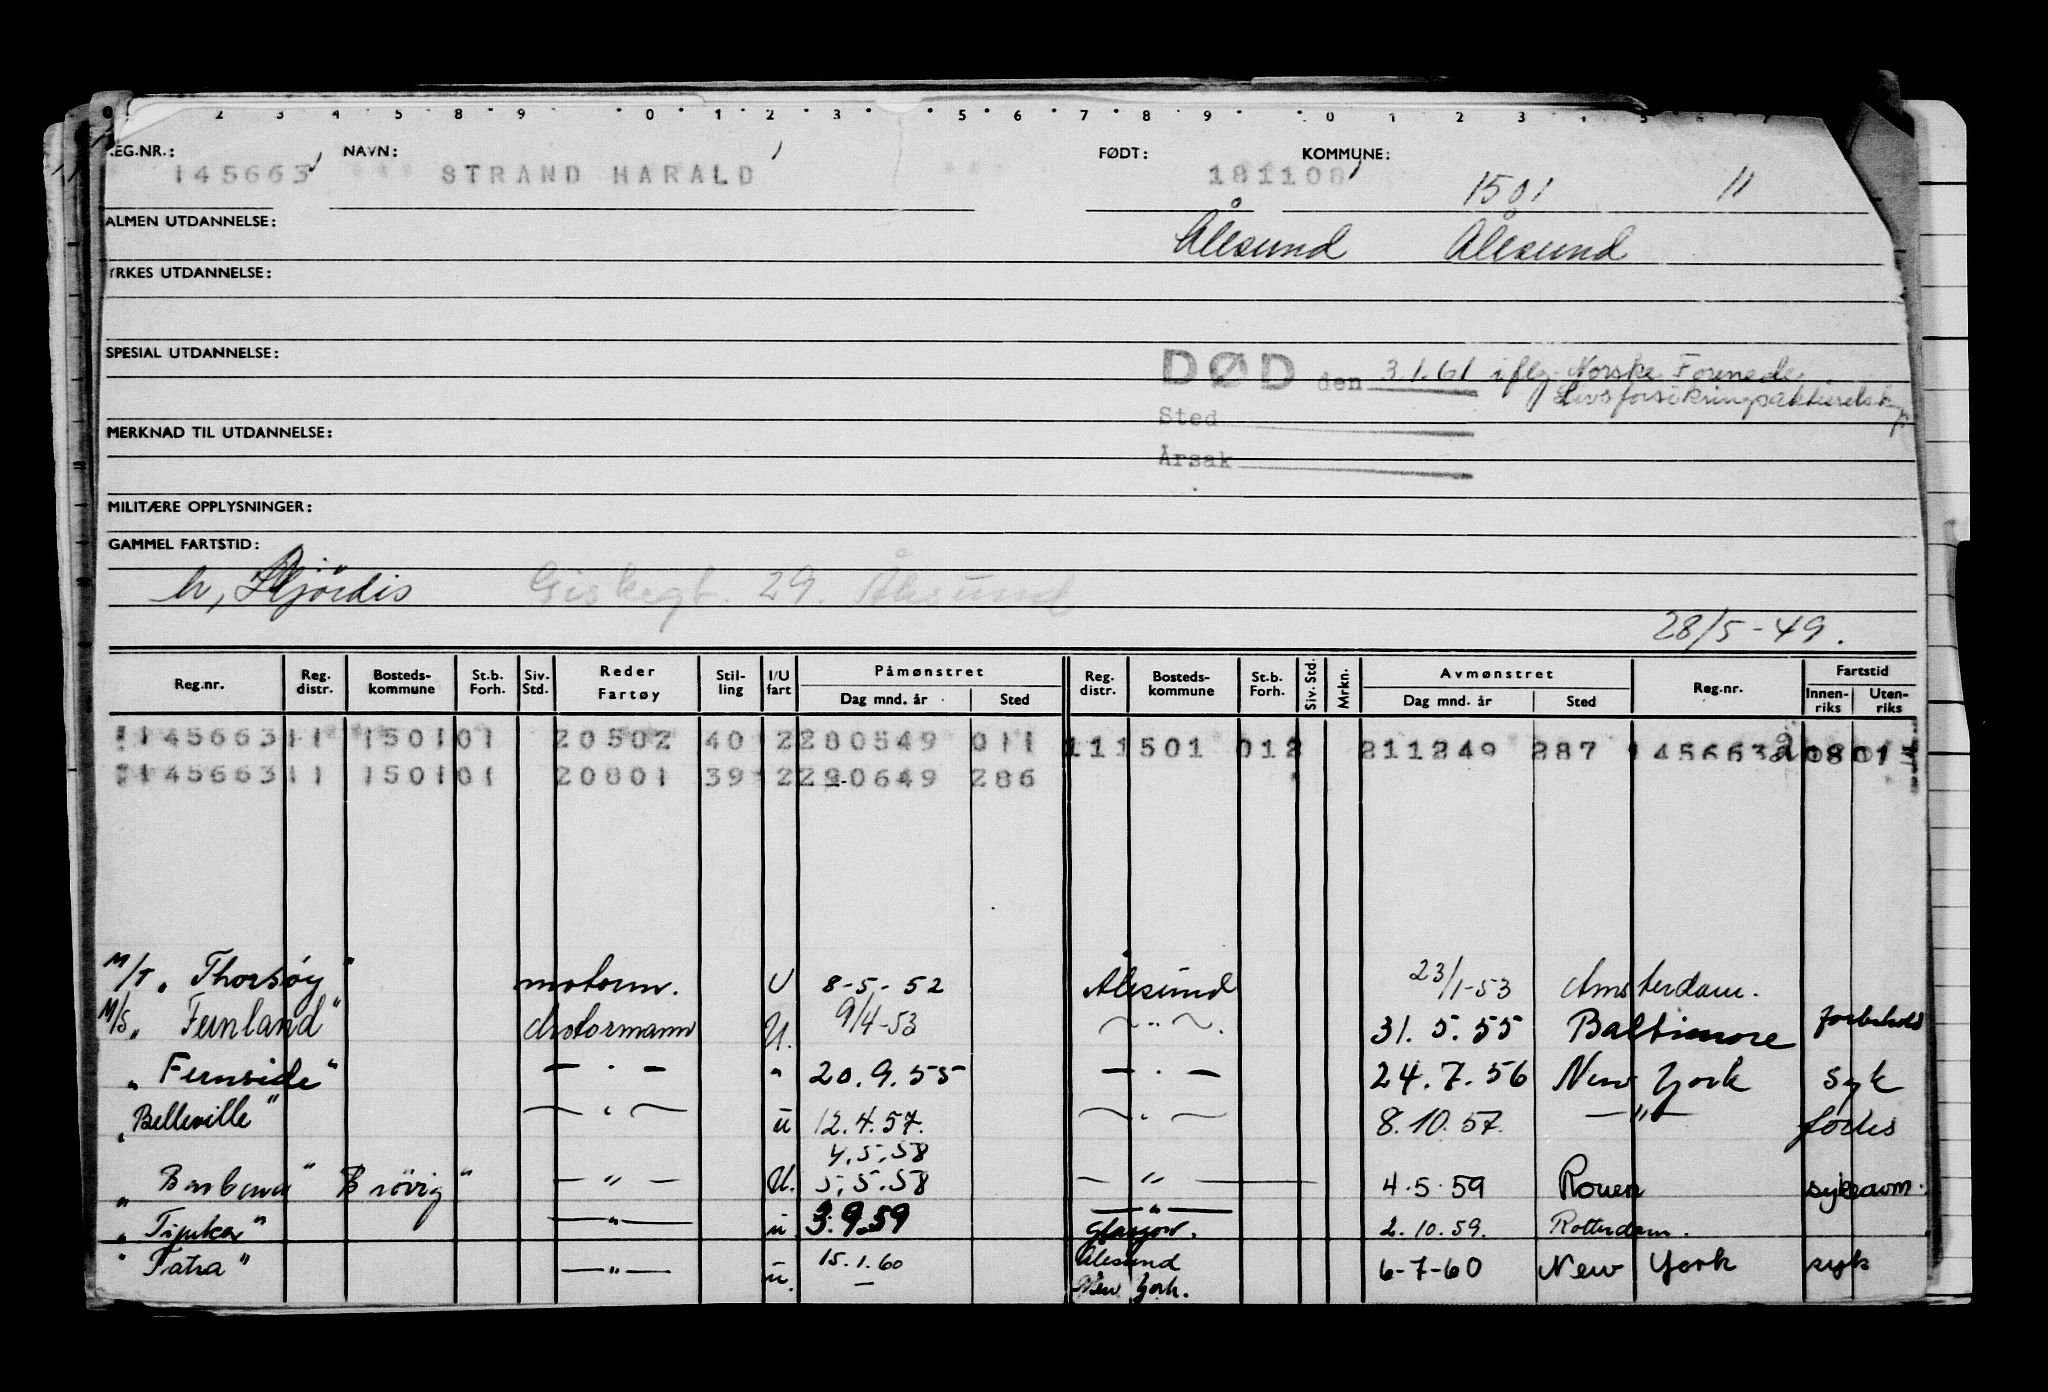 2 3 4 5 8 9 0 1 2 3 5 6 7 8 9 0 1 2 3
REG.NR.: NAVN: FØDT: KOMMUNE:
145663 STRAND HARALD 181108 1501 11
ALMEN UTDANNELSE: Ålesund Ålesund
YRKES UTDANNELSE:
SPESIAL UTDANNELSE:
DØD den 3.1.61 iflg. Norske Forenede
Livsforsikringsaktieselskap
Sted
MERKNAD TIL UTDANNELSE:
Årsak
MILITÆRE OPPLYSNINGER:
GAMMEL FARTSTID:
h, Hjördis Giskegt. 29. Ålesund
28/5-49.
Reg.nr. Reg. distr. Bosteds-kommune St.b. Forh. Siv. Std. Reder Fartøy Stil-ling I/U fart Påmønstret Dag mnd. år Sted Reg. distr. Bosteds-kommune St.b. Forh. Siv. Std. Mrkn. Avmønstret Dag mnd. år Sted Reg.nr. Fartstid Innen-riks Uten-riks
11456631 1 150101 20502 40 12280549 011 111501 012 211249 287 145663
11456631 1 150101 20801 39 12290649 286
M/T „Thorsøy" motorm. U 8-5-52 Ålesund 23/1-53 Amsterdam.
M/S „Fernland" Motormann U. 9/4-53 ~"~. 31.5.55 Baltimore forbehold
„Fernside" —.— " 20.9.55 —.— 24.7.56 New York syk
„Belleville" —"— u 12.4.57. —"— 8.10.57. —"— fores
4.5.58
„Barbara Brövig" —"— U. 5.5.58 —"— 4.5.59 Rouen sykeavm.
—"—
„Tijuka" —"— u. 3.9.59 Glasgow. 2.10.59. Rotterdam.
"Tatra" —"— u. 15.1.60 Ålesund 6-7-60 New York syk
— New York.